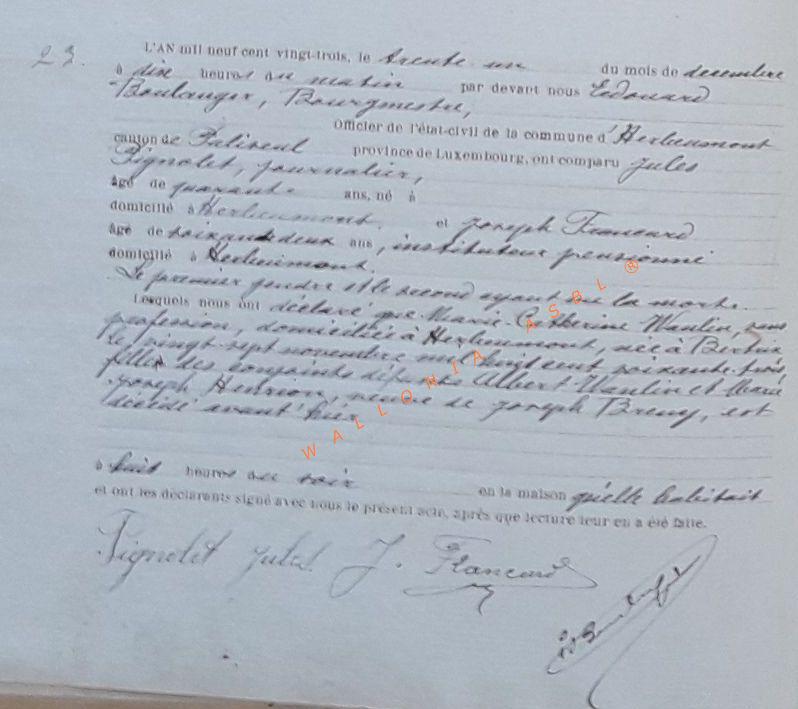 23.
L'AN mil neuf cent vingt-trois, le trente un du mois de decembre
à dix heures du matin par devant nous Edouard
Boulanger, Bourgmestre,
Officier de l'état-civil de la commune d'Herbeumont
canton de Paliseul province de Luxembourg, ont comparu Jules
Pignolet, journalier,
âgé de quarante ans, né à
domicilié à Herbeumont. et Joseph Francard
âgé de soixante deux ans, instituteur pensionné
domicilié à Herbeumont.
Le premier gendre et le second ayant vu la morte.
Lesquels nous ont déclaré que Marie Catherine Waulin, sans
profession, domiciliée à Herbeumont, née à Bertrix
le vingt sept novembre mil huit cent soixante trois,
fille des conjoints décédés Albert Waulin et Marie
Joseph Henrion, veuve de Joseph Bremy, est
décédé avant hier
à huit heures du soir en la maison qu'elle habitait
et ont les déclarants signé avec nous le présent acte, après que lecture leur en a été faite.
Pignolet Jules J. Francard
WALLONIA ASBL ®